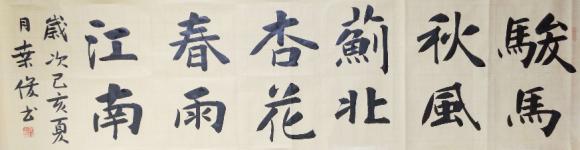 駿馬
秋風
薊北
杏花
春雨
江南
歲次己亥夏
月桒俊书